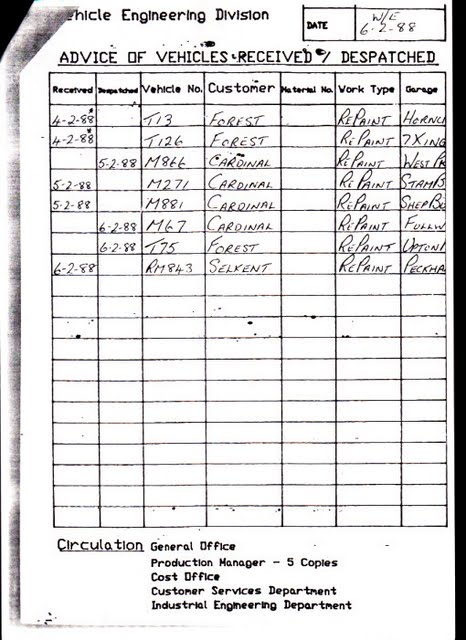 ehicle Engineering Division
DATE W/E 6-2-88
ADVICE OF VEHICLES RECEIVED / DESPATCHED
Received Despatched Vehicle No. Customer Material No. Work Type Garage
4-2-88* T13 FOREST REPAINT HORNCH
4-2-88* T126 FOREST REPAINT 7XING
5-2-88 M866 CARDINAL REPAINT WEST PR
5-2-88 M271 CARDINAL REPAINT STAMB
5-2-88 M881 CARDINAL REPAINT SHEPBU
6-2-88 M67 CARDINAL REPAINT FULLW
6-2-88 T75 FOREST REPAINT UPTON
6-2-88 RM843 SELKENT REPAINT PECKHA
Circulation General Office
Production Manager - 5 Copies
Cost Office
Customer Services Department
Industrial Engineering Department